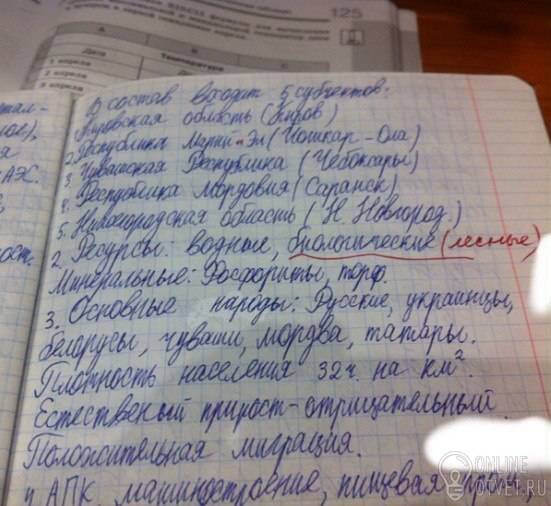 125
A
B
C
Дата
Температура
1 апреля
2 апреля
3 апреля
АЭС.
В состав входит 5 субъектов:
Кировская область (Киров)
2. Республика Марий-Эл (Йошкар-Ола)
3. Чувашская Республика (Чебоксары)
4. Республика Мордовия (Саранск)
5. Нижегородская область (Н. Новгород.)
2. Ресурсы: водные, биологические (лесные)
Минеральные: Фосфориты, торф.
3. Основные народы: Русские, украинцы,
беларусы, чуваши, мордва, татары.
Плотность населения 32 ч. на км².
Естественый прирост-отрицательный
Положительная миграция.
4 АПК, машиностроение, пищевая пром,
ONLINE
OTVET.RU